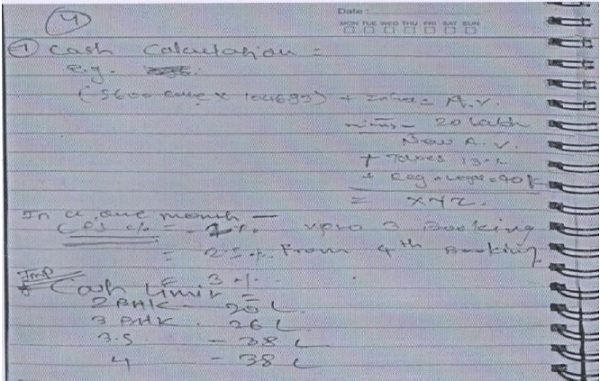 4
Date :
MON TUE WED THU FRI SAT SUN
① Cash Calculation =
e.g.
+ = A.V.
minus - 20 Lakh
New A.V.
+ Taxes 13%
+ Reg 40K
= XYZ.
In a one month —
= 2% upto 3 Booking
= 2.5% From 4th Booking
Imp = 3%
* Cash Limit =
2 BHK - 20 L.
3 BHK - 26 L
3.5 - 38 L
4 - 38 L